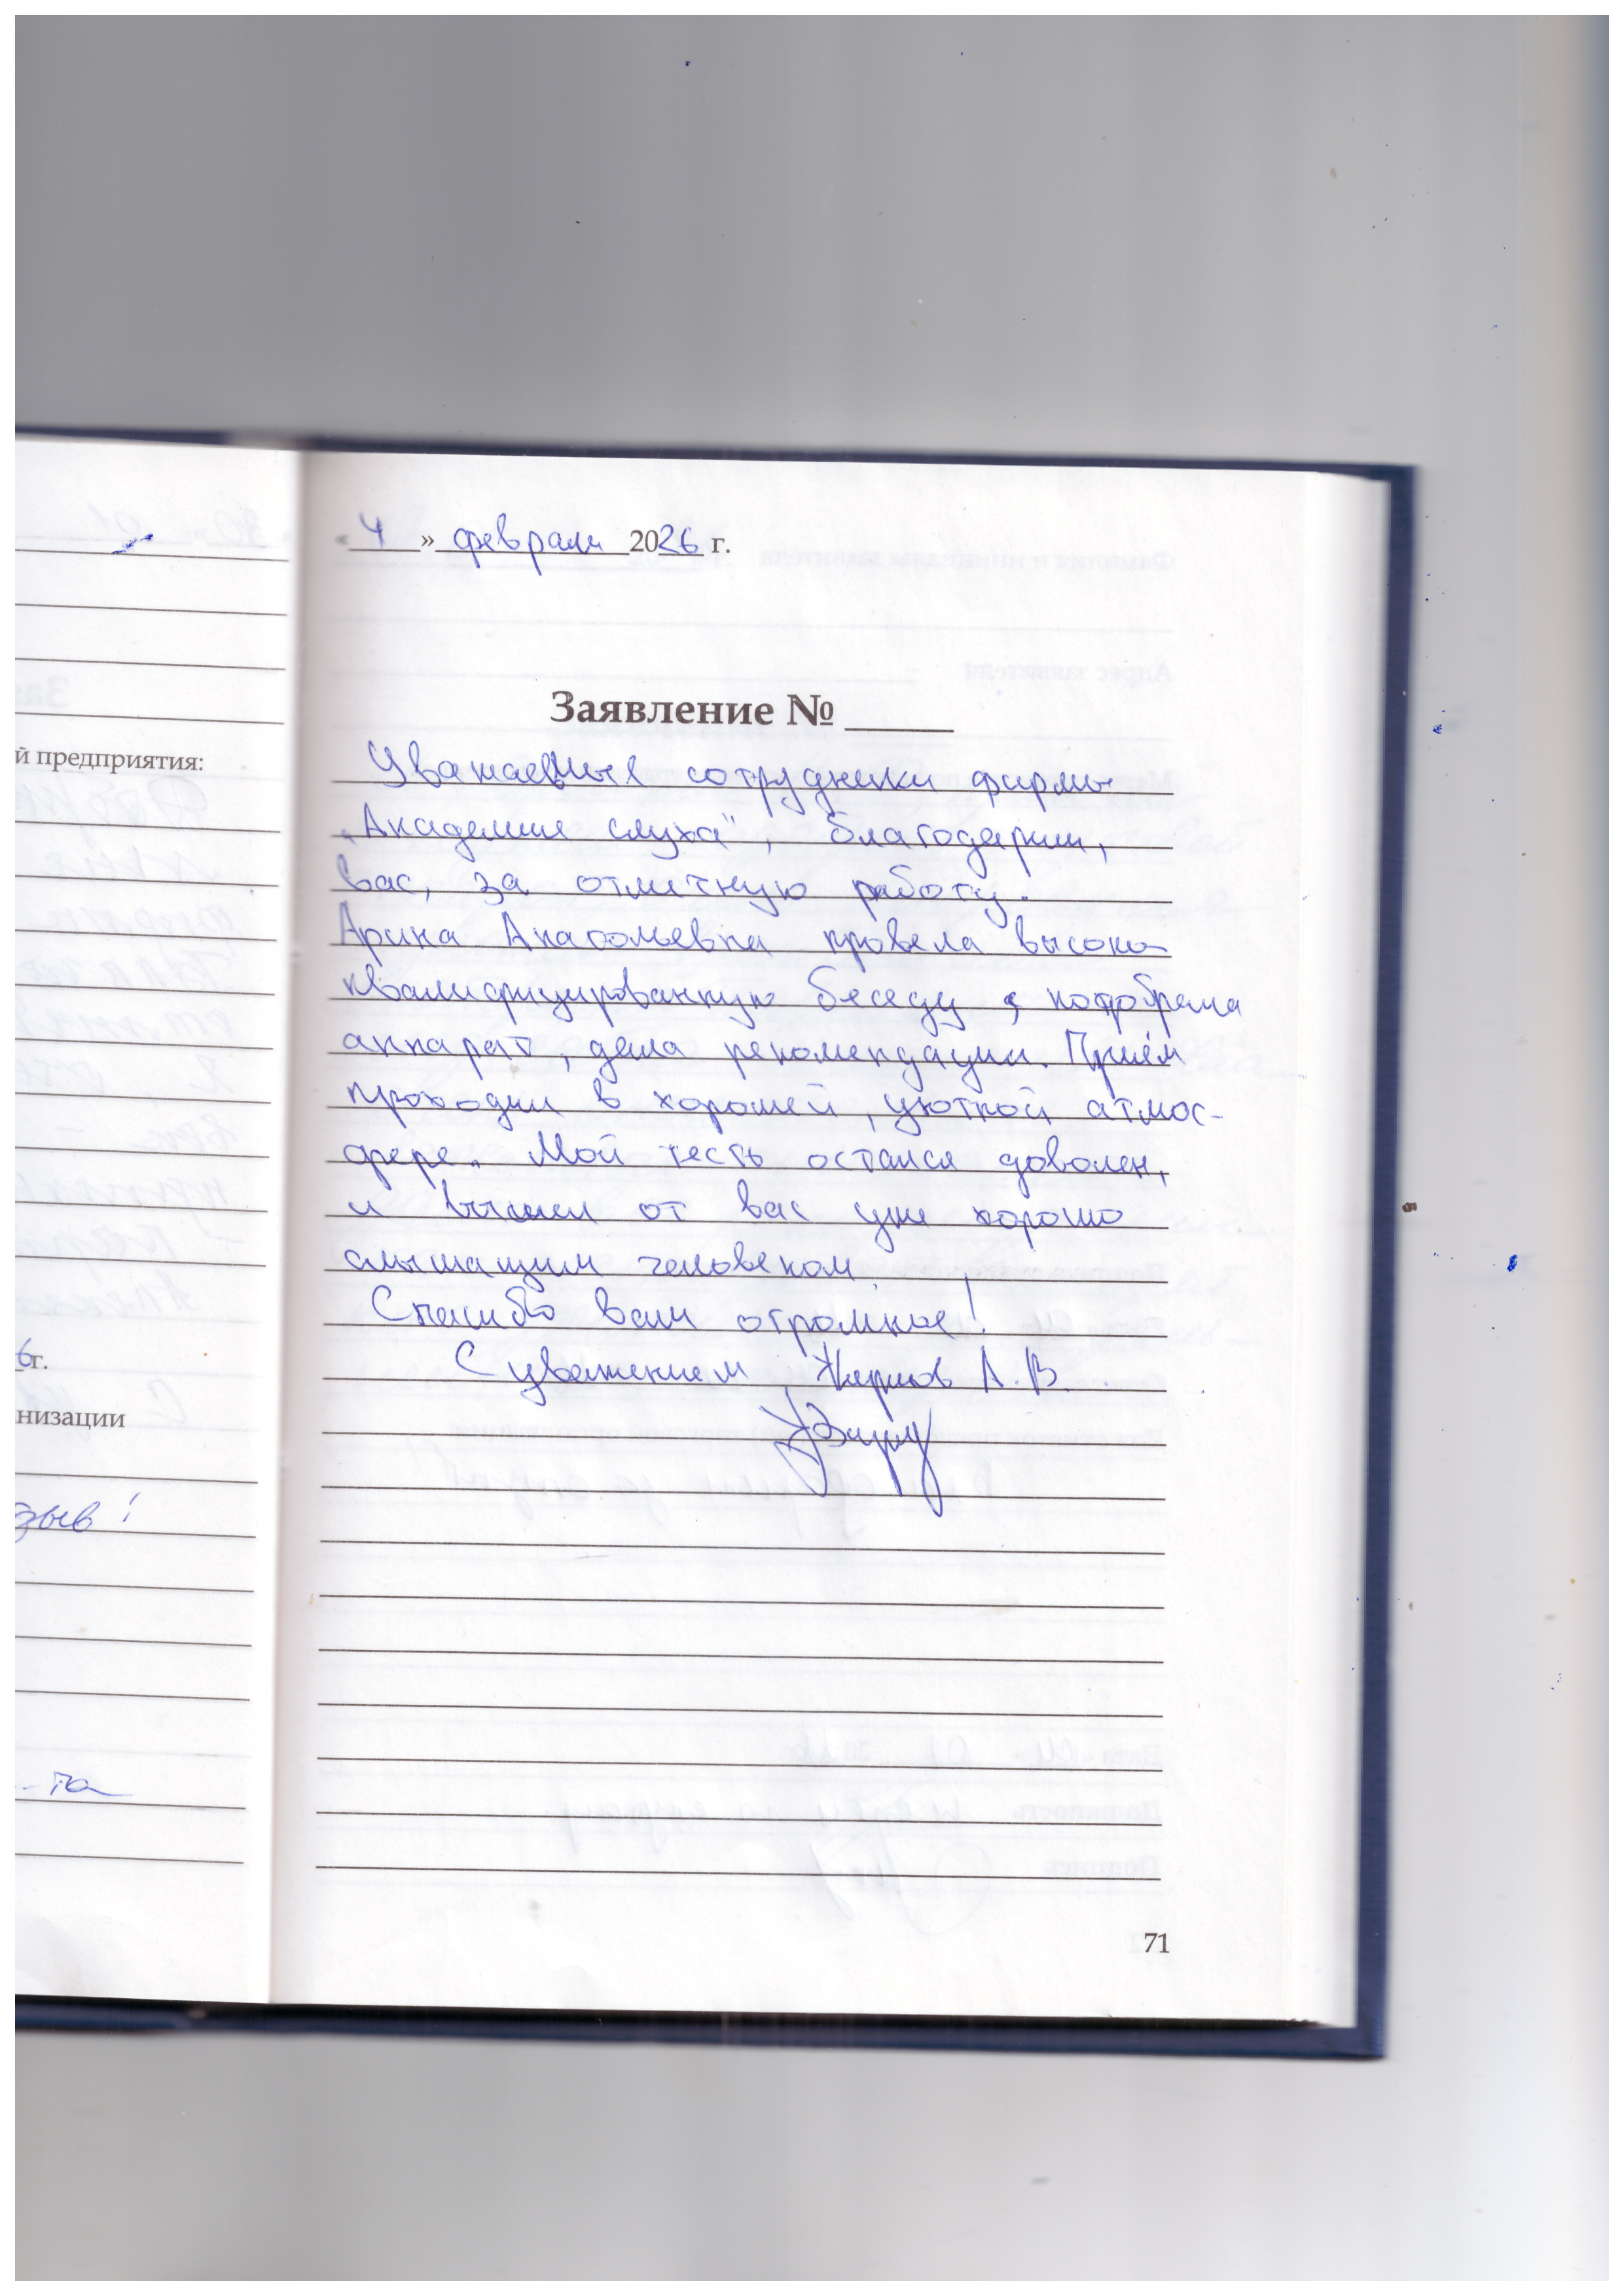 й предприятия:
6г.
низации
зыв!
-та
« 4 » февраля 2026 г.
Заявление №
Уважаемые сотрудники фирмы
"Академия слуха", благодарим,
вас, за отличную работу.
Арина Анатольевна провела высоко-
квалифицированную беседу, подобрала
аппарат, дала рекомендации. Приём
проходил в хорошей, уютной атмос-
фере. Мой тесть остался доволен,
и вышел от вас уже хорошо
слышащим человеком.
Спасибо вам огромное!
С уважением, А.В.
71